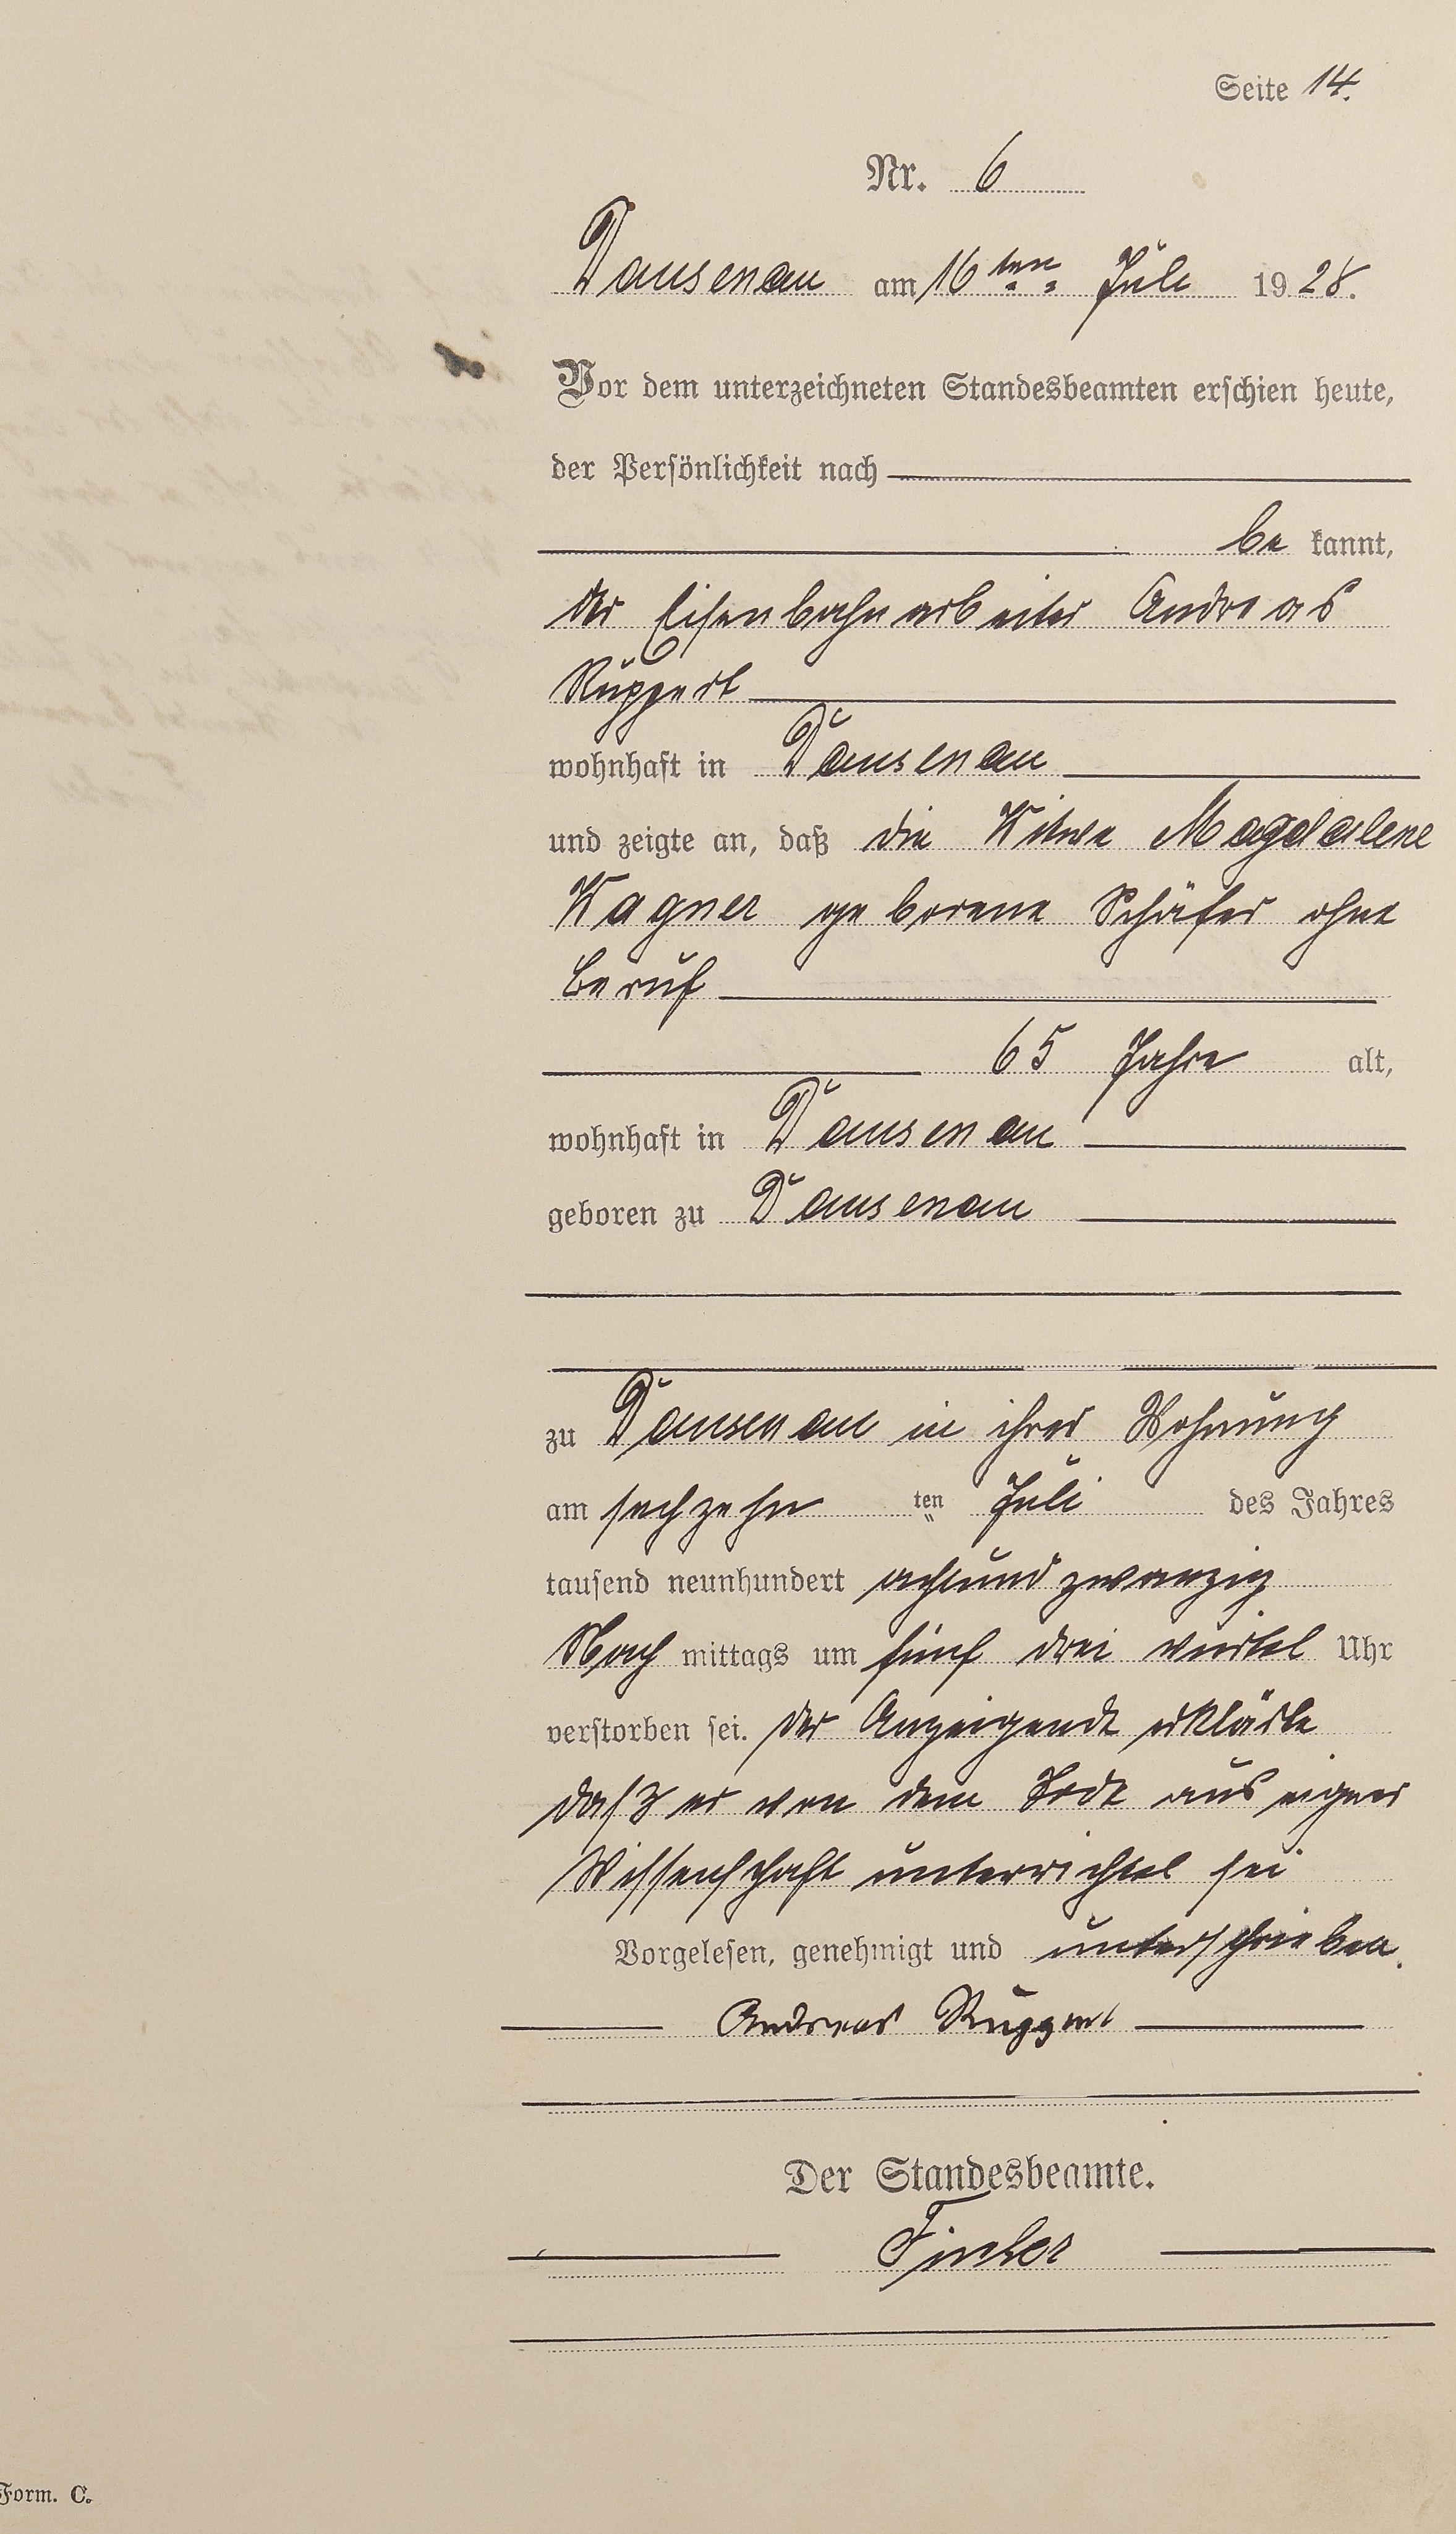 Seite 14.
Nr. 6
Dausenau am 16ten Juli 1928.
Vor dem unterzeichneten Standesbeamten erschien heute,
der Persönlichkeit nach
be kannt,
der Eisenbahnarbeiter Andreas
Ruppert
wohnhaft in Dausenau
und zeigte an, daß die Witwe Magdalene
Wagner geborene Schäfer ohne
Beruf
65 Jahre alt,
wohnhaft in Dausenau
geboren zu Dausenau
zu Dausenau in ihrer Wohnung
am sechzehn ten Juli des Jahres
tausend neunhundert achtundzwanzig
Nach mittags um fünf drei viertel Uhr
verstorben sei. Der Anzeigende erklärte
daß er von dem Tode aus eigner
Wissenschaft unterrichtet sei
Vorgelesen, genehmigt und unterschrieben.
Andreas Ruppert
Der Standesbeamte.
Form. C.